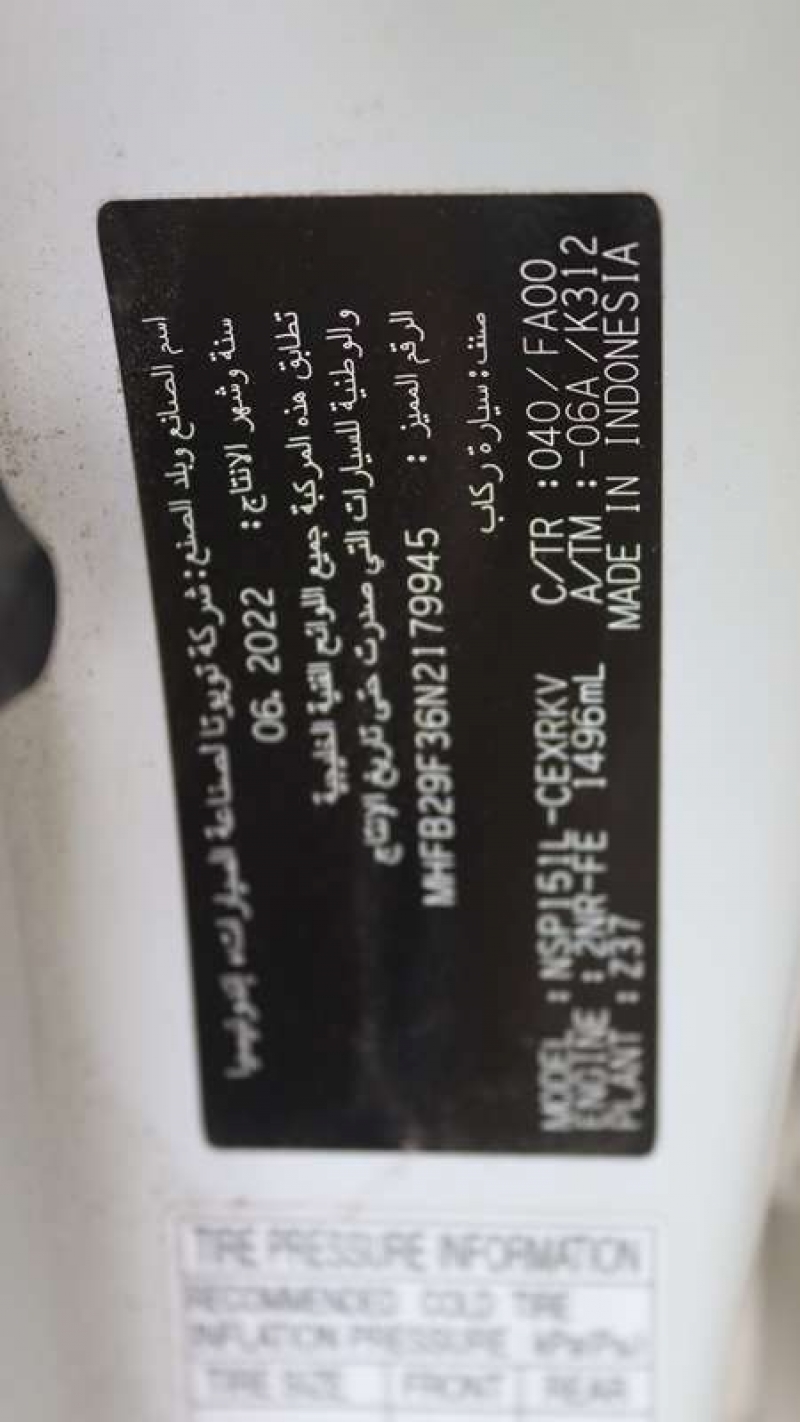 اسم الصانع وبلد الصنع: شركة تويوتا لصناعة السيارات، إندونيسيا
سنة وشهر الانتاج: 06. 2022
تطابق هذه المركبة جميع اللوائح الفنية الخليجية
والوطنية للسيارات التي صدرت حتى تاريخ الإنتاج
الرقم المميز : MHFB29F36N2179945
صنف: سيارة ركاب
MODEL : NSP151L-CEXRKV C/TR : 040 / FA00
ENGINE : 2NR-FE 1496mL A/TM : -06A / K312
PLANT : Z37 MADE IN INDONESIA
TIRE PRESSURE INFORMATION
RECOMMENDED COLD TIRE
INFLATION PRESSURE kPa(Psi)
TIRE SIZE FRONT REAR